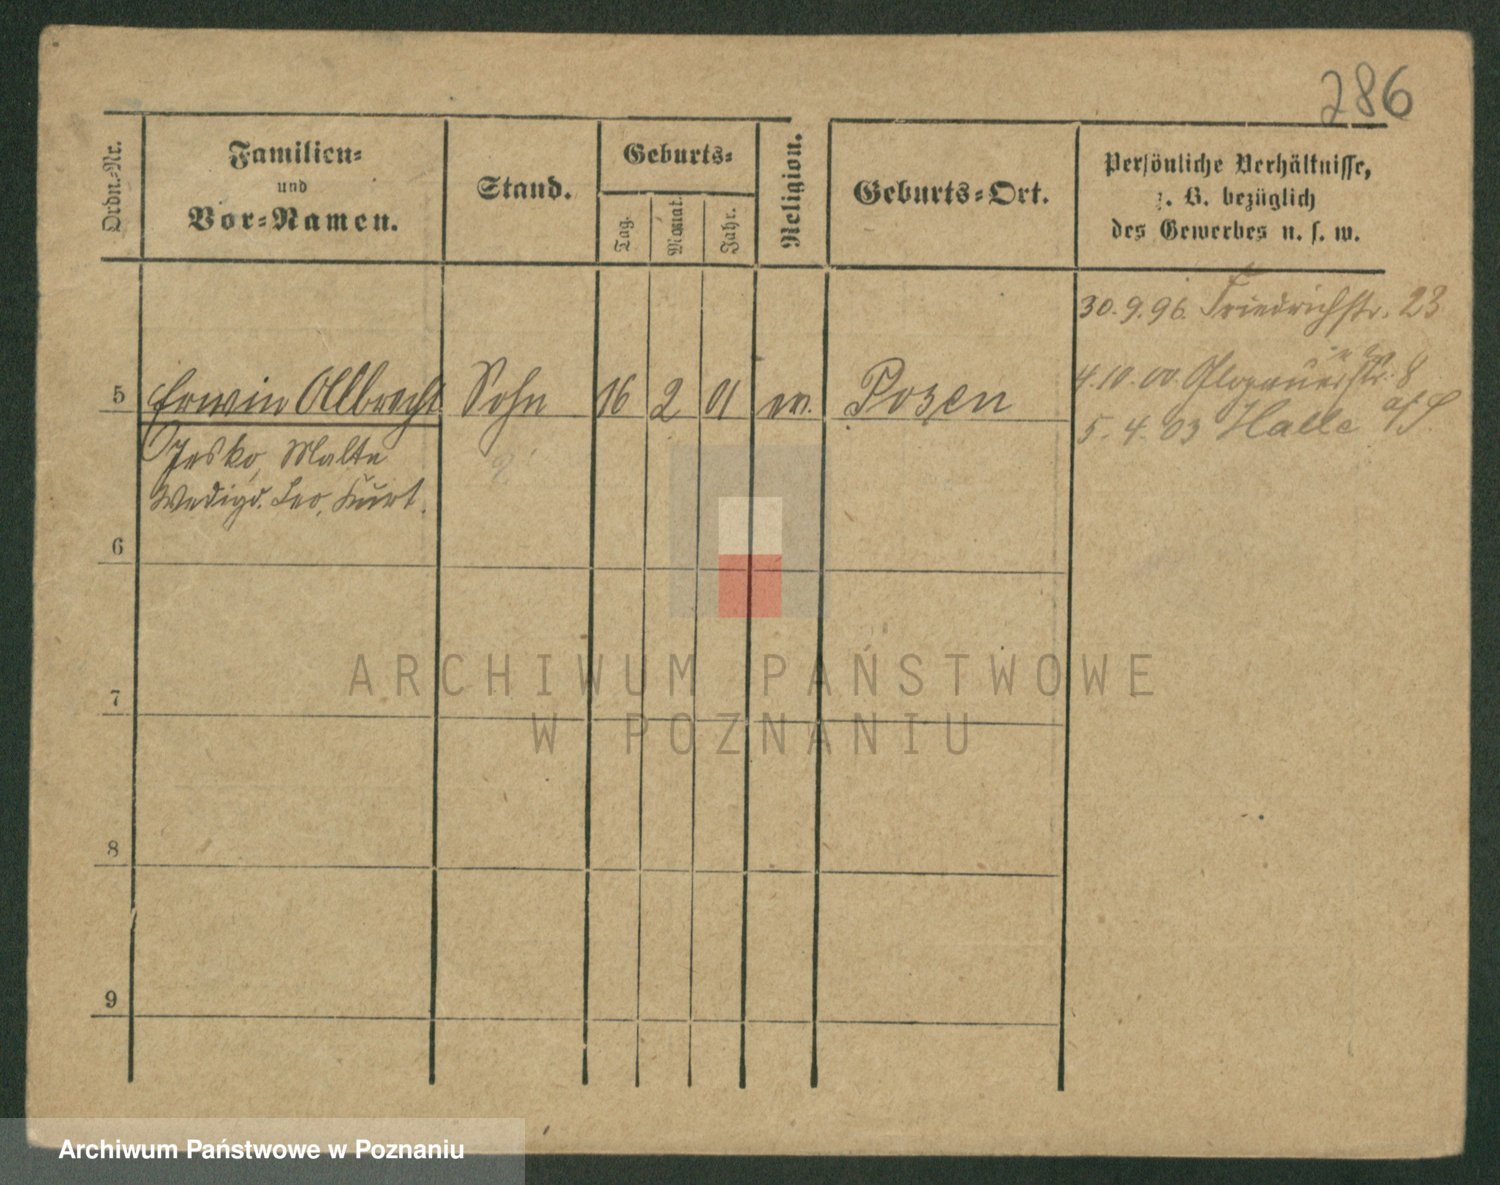 286
Ordn.-Nr.
Familien-
und
Vor-Namen.
Stand.
Geburts-
Tag.
Monat.
Jahr.
Religion.
Geburts-Ort.
Persönliche Verhältnisse,
z. B. bezüglich
des Gewerbes u. s. w.
30.9.96. Friedrichstr. 23
4.10.00. Glogauerstr. 8
5 Erwin Albrecht Sohn 16 2 01 ev. Posen
5.4.03 Halle a/S.
Jesko, Malte
Wedigo. Leo, Kurt.
6
7
8
9
ARCHIWUM PAŃSTWOWE
W POZNANIU
Archiwum Państwowe w Poznaniu